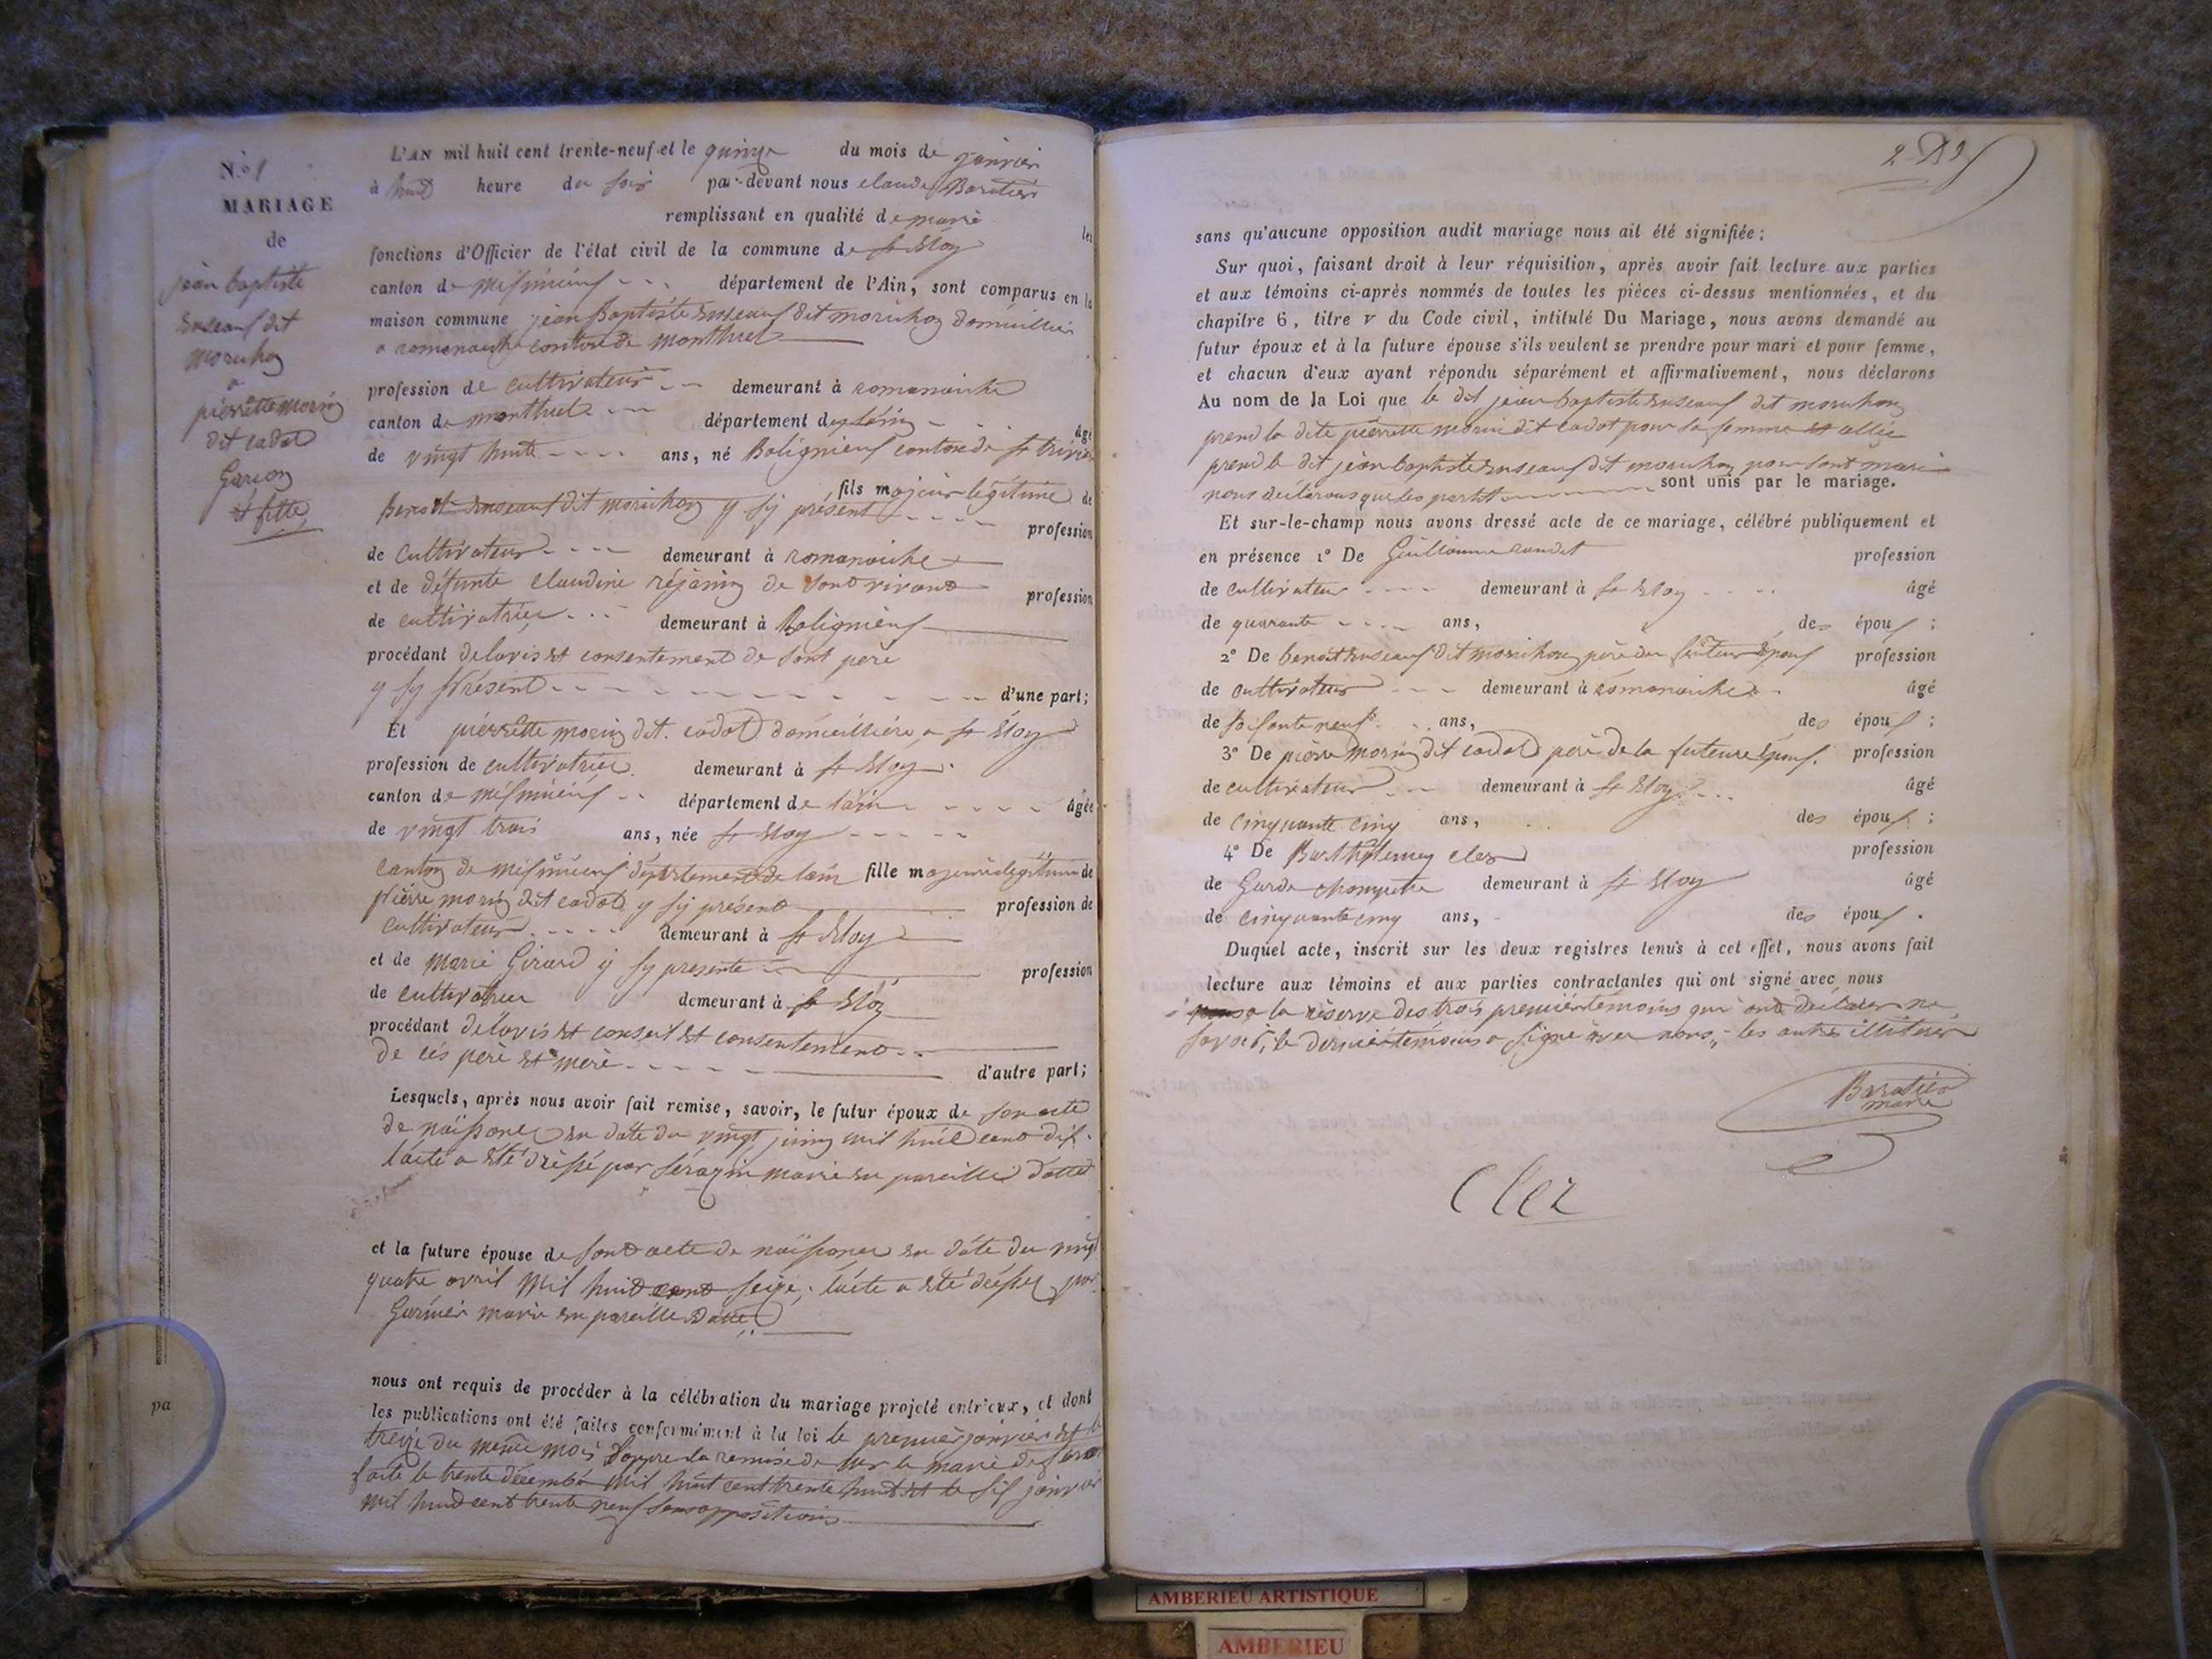 N.º 1
MARIAGE
de
jean baptiste
Enseauf dit
morichon
a
pierrette morin
dit cadot
Garcon
et fille
L'AN mil huit cent trente-neuf et le quinze du mois de janvier
à huit heure du soir par-devant nous claude Baratier
remplissant en qualité de marie les
fonctions d'Officier de l'état civil de la commune de St Eloy
canton de Meximieux département de l'Ain, sont comparus en la
maison commune jean Baptiste Enseauf dit morichon domicilier
a romanaiche canton de monthuel
profession de cultivateur demeurant à romanaiche
canton de monthuel département de lain âgé
de vingt huit ans, né Baligneux canton de St trivier
fils majeur legitime de
Benoit Enseauf dit morichon y sy présent profession
de cultivateur demeurant à romanaiche
et de défunte claudine réjanin de sont vivant profession
de cultivatrice demeurant à Baligneux
procédant de lavis et consentement de sont père
y sy Présent d'une part;
Et pierrette morin dit cadot domicilliére a St Eloy
profession de cultivatrice demeurant à St Eloy
canton de meximieux département de lain âgée
de vingt trois ans, née St Eloy
canton de meximieux département de lain fille majeure legitime de
Pierre morin dit cadot y sy présent profession de
cultivateur demeurant à St Eloy
et de marie Girard y sy presente profession
de cultivatrice demeurant à St Eloy
procédant de lavis et conseil et consentement
de ces père et mère d'autre part;
Lesquels, après nous avoir fait remise, savoir, le futur époux de son acte
de naissance en date du vingt juin mil huit cent dix
lacte a été dressé par Sérazin marie en pareille datte
et la future épouse de sont acte de naissance en date du vingt
quatre avril mil huit cent seize, lacte a été dressé par
Garnier marie en pareille datte
nous ont requis de procéder à la célébration du mariage projeté entr'eux, et dont
les publications ont été faites conformément à la loi le premier janvier et le
treize du même mois la remise de le marie de
faite le trente décembre mil huit cent trente huit et le six janvier
mil huit cent trente neuf sans oppositions
pa
sans qu'aucune opposition audit mariage nous ait été signifiée;
Sur quoi, faisant droit à leur réquisition, après avoir fait lecture aux parties
et aux témoins ci-après nommés de toutes les pièces ci-dessus mentionnées, et du
chapitre 6, titre v du Code civil, intitulé Du Mariage, nous avons demandé au
futur époux et à la future épouse s'ils veulent se prendre pour mari et pour femme,
et chacun d'eux ayant répondu séparément et affirmativement, nous déclarons
Au nom de la Loi que le dit jean baptiste Enseauf dit morichon
prend la dite pierrette morin dit cadot pour sa femme et elle
prend le dit jean baptiste Enseauf dit morichon pour sont mari
nous déclarons que les partit sont unis par le mariage.
Et sur-le-champ nous avons dressé acte de ce mariage, célébré publiquement et
en présence 1º De Guillaume profession
de cultivateur demeurant à St Eloy âgé
de quarante ans, des épouf ;
2º De benoit Enseauf dit morichon père du futeur Epouf profession
de cultivateur demeurant à romanaiche âgé
de soisante neuf ans, des épouf ;
3º De pierre morin dit cadot père de la futeure Epouf. profession
de cultivateur demeurant à St Eloy âgé
de cinquante cinq ans, des épouf ;
4º De Barthelemey Clez profession
de Garde champetre demeurant à St Eloy âgé
de cinquante cinq ans, des épouf .
Duquel acte, inscrit sur les deux registres tenus à cet effet, nous avons fait
lecture aux témoins et aux parties contractantes qui ont signé avec nous
a la réserve des trois premier témoins qui ont déclarer ne
savoir, le dernier témoins a signé avec nous, les autres illiterer
Baratier
marie
Clez
AMBERIEU ARTISTIQUE
AMBERIEU